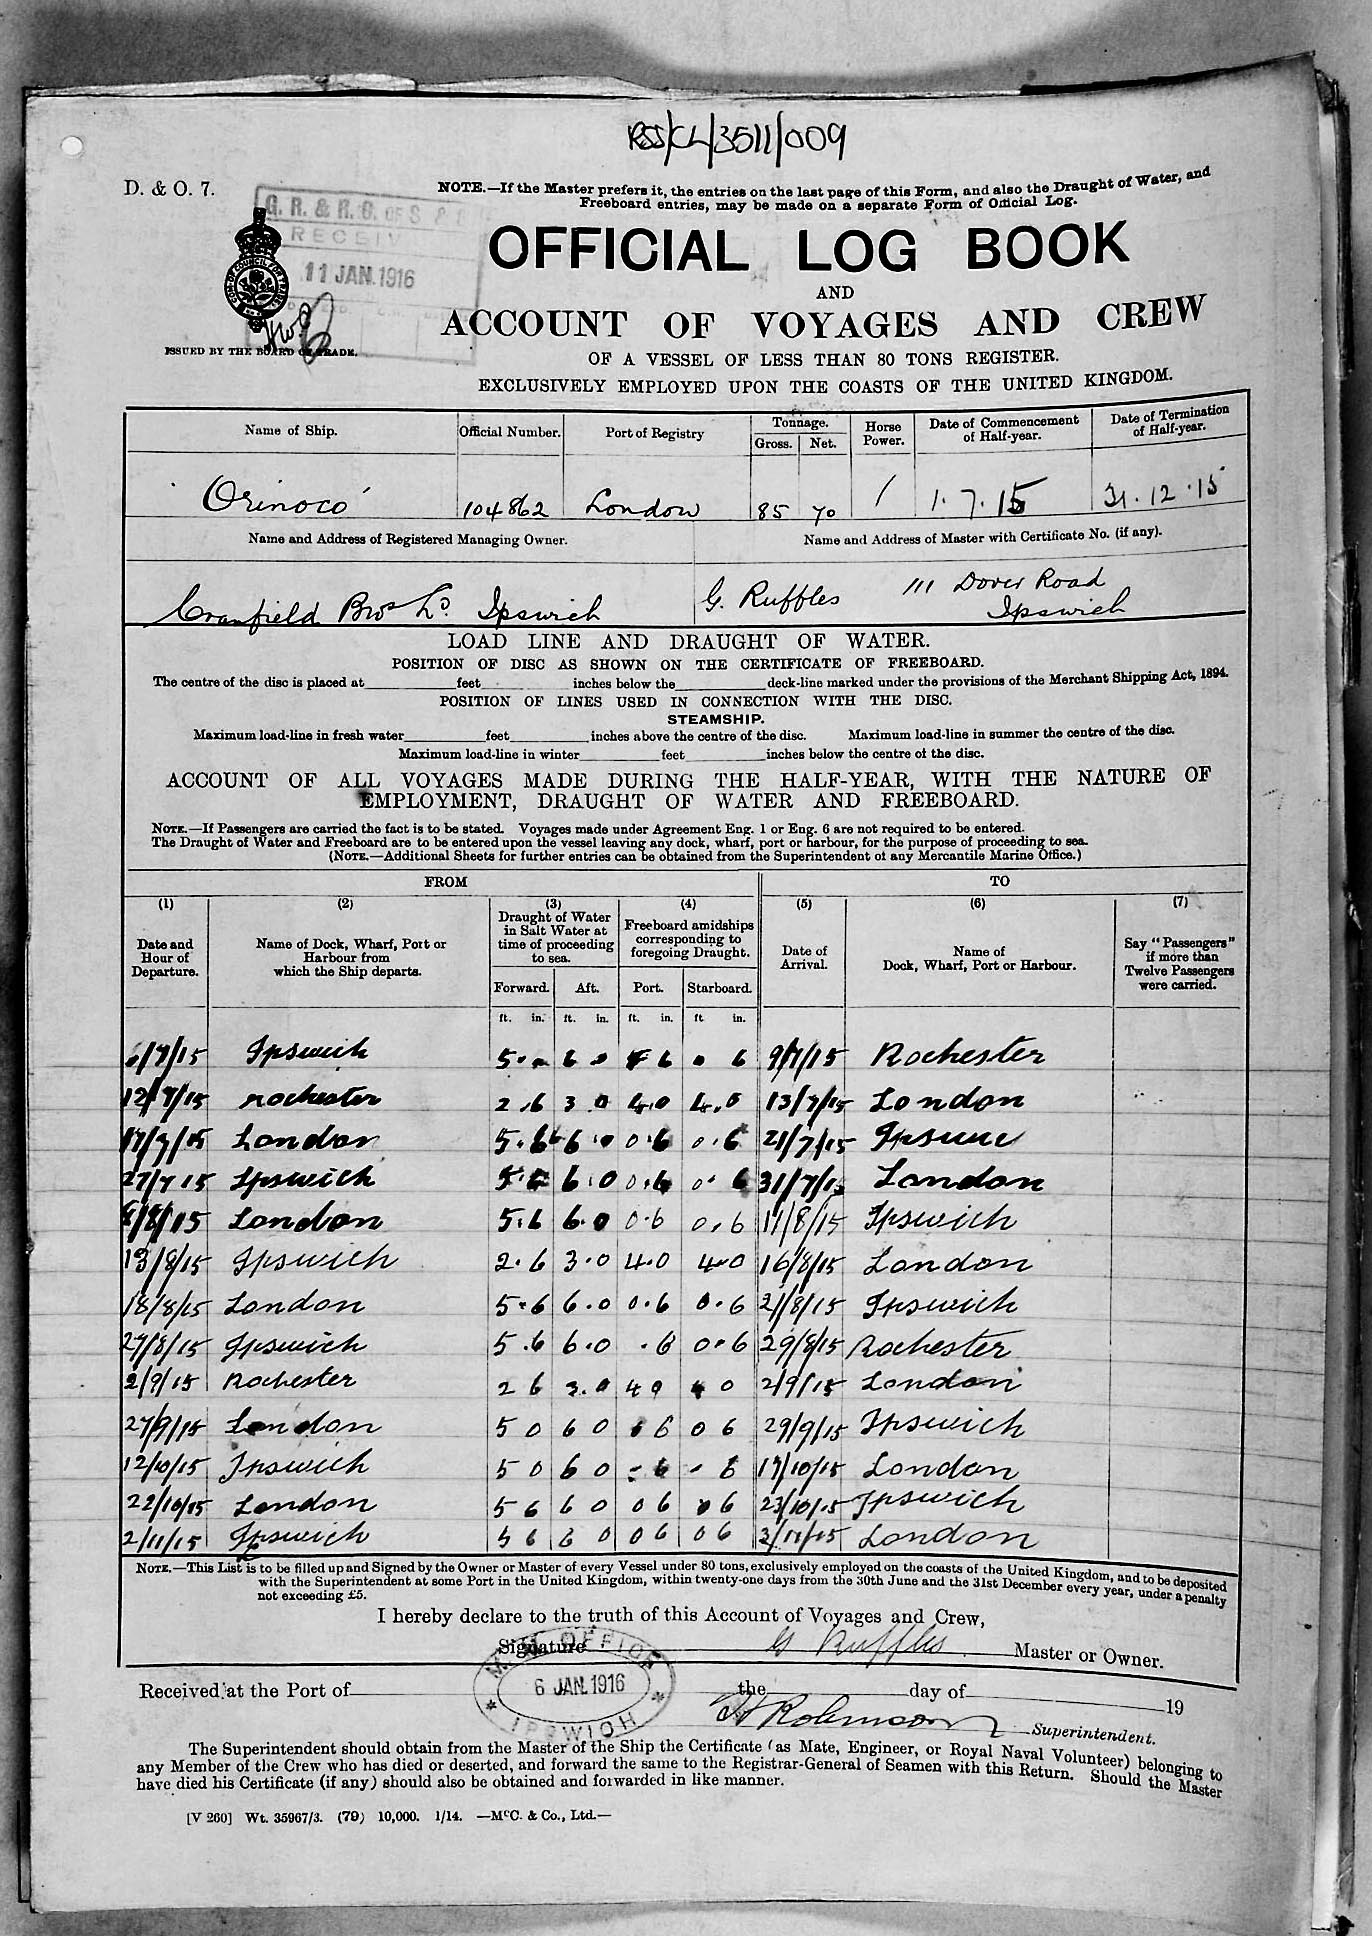 RSS/CL/3511/009
D. & O. 7.
NOTE.—If the Master prefers it, the entries on the last page of this Form, and also the Draught of Water, and
Freeboard entries, may be made on a separate Form of Official Log.
G. R. & R. G. OF S & S
RECEIV
11 JAN. 1916
ISSUED BY THE BOARD OF TRADE.
OFFICIAL LOG BOOK
AND
ACCOUNT OF VOYAGES AND CREW
OF A VESSEL OF LESS THAN 80 TONS REGISTER.
EXCLUSIVELY EMPLOYED UPON THE COASTS OF THE UNITED KINGDOM.
Name of Ship. Official Number. Port of Registry Tonnage. Gross. Net. Horse Power. Date of Commencement of Half-year. Date of Termination of Half-year.
'Orinoco' 104862 London 85 70 / 1.7.15 31.12.15
Name and Address of Registered Managing Owner. Name and Address of Master with Certificate No. (if any).
Cranfield Bros Ld. Ipswich G. Ruffles 111 Dover Road
Ipswich
LOAD LINE AND DRAUGHT OF WATER.
POSITION OF DISC AS SHOWN ON THE CERTIFICATE OF FREEBOARD.
The centre of the disc is placed at feet inches below the deck-line marked under the provisions of the Merchant Shipping Act, 1894.
POSITION OF LINES USED IN CONNECTION WITH THE DISC.
STEAMSHIP.
Maximum load-line in fresh water feet inches above the centre of the disc. Maximum load-line in summer the centre of the disc.
Maximum load-line in winter feet inches below the centre of the disc.
ACCOUNT OF ALL VOYAGES MADE DURING THE HALF-YEAR, WITH THE NATURE OF
EMPLOYMENT, DRAUGHT OF WATER AND FREEBOARD.
NOTE.—If Passengers are carried the fact is to be stated. Voyages made under Agreement Eng. 1 or Eng. 6 are not required to be entered.
The Draught of Water and Freeboard are to be entered upon the vessel leaving any dock, wharf, port or harbour, for the purpose of proceeding to sea.
(NOTE.—Additional Sheets for further entries can be obtained from the Superintendent of any Mercantile Marine Office.)
FROM TO
(1) (2) (3) (4) (5) (6) (7)
Date and Hour of Departure. Name of Dock, Wharf, Port or Harbour from which the Ship departs. Draught of Water in Salt Water at time of proceeding to sea. Freeboard amidships corresponding to foregoing Draught. Date of Arrival. Name of Dock, Wharf, Port or Harbour. Say "Passengers" if more than Twelve Passengers were carried.
Forward. Aft. Port. Starboard.
ft. in. ft. in. ft. in. ft in.
6/7/15 Ipswich 5 6 0 6 6 9/7/15 Rochester
12/7/15 Rochester 2.6 3 0 4.0 4.0 13/7/15 London
17/7/15 London 5.6 6.0 0.6 0.6 21/7/15
27/7 15 Ipswich 5.6 6.0 0.6 0.6 31/7/15 London
8/8/15 London 5.6 6.0 0.6 0.6 11/8/15 Ipswich
13/8/15 Ipswich 2.6 3.0 4.0 4.0 16/8/15 London
18/8/15 London 5.6 6.0 0.6 0.6 21/8/15 Ipswich
27/8/15 Ipswich 5.6 6.0 .6 0.6 29/8/15 Rochester
2/9/15 Rochester 2 6 3.0 4 0 4 0 2/9/15 London
27/9/15 London 5 0 6 0 6 0 6 29/9/15 Ipswich
12/10/15 Ipswich 5 0 6 0 - 6 - 6 17/10/15 London
22/10/15 London 5 6 6 0 0 6 0 6 23/10/15 Ipswich
2/11/15 Ipswich 5 6 6 0 0 6 0 6 3/11/15 London
NOTE.—This List is to be filled up and Signed by the Owner or Master of every Vessel under 80 tons, exclusively employed on the coasts of the United Kingdom, and to be deposited
with the Superintendent at some Port in the United Kingdom, within twenty-one days from the 30th June and the 31st December every year, under a penalty
not exceeding £5.
I hereby declare to the truth of this Account of Voyages and Crew,
Signature G Ruffles Master or Owner.
M. M. OFFICE
6 JAN. 1916
IPSWICH
Received at the Port of the day of 19
Robinson Superintendent.
The Superintendent should obtain from the Master of the Ship the Certificate (as Mate, Engineer, or Royal Naval Volunteer) belonging to
any Member of the Crew who has died or deserted, and forward the same to the Registrar-General of Seamen with this Return. Should the Master
have died his Certificate (if any) should also be obtained and forwarded in like manner.
[V 260] Wt. 35967/3. (79) 10,000. 1/14. —McC. & Co., Ltd.—